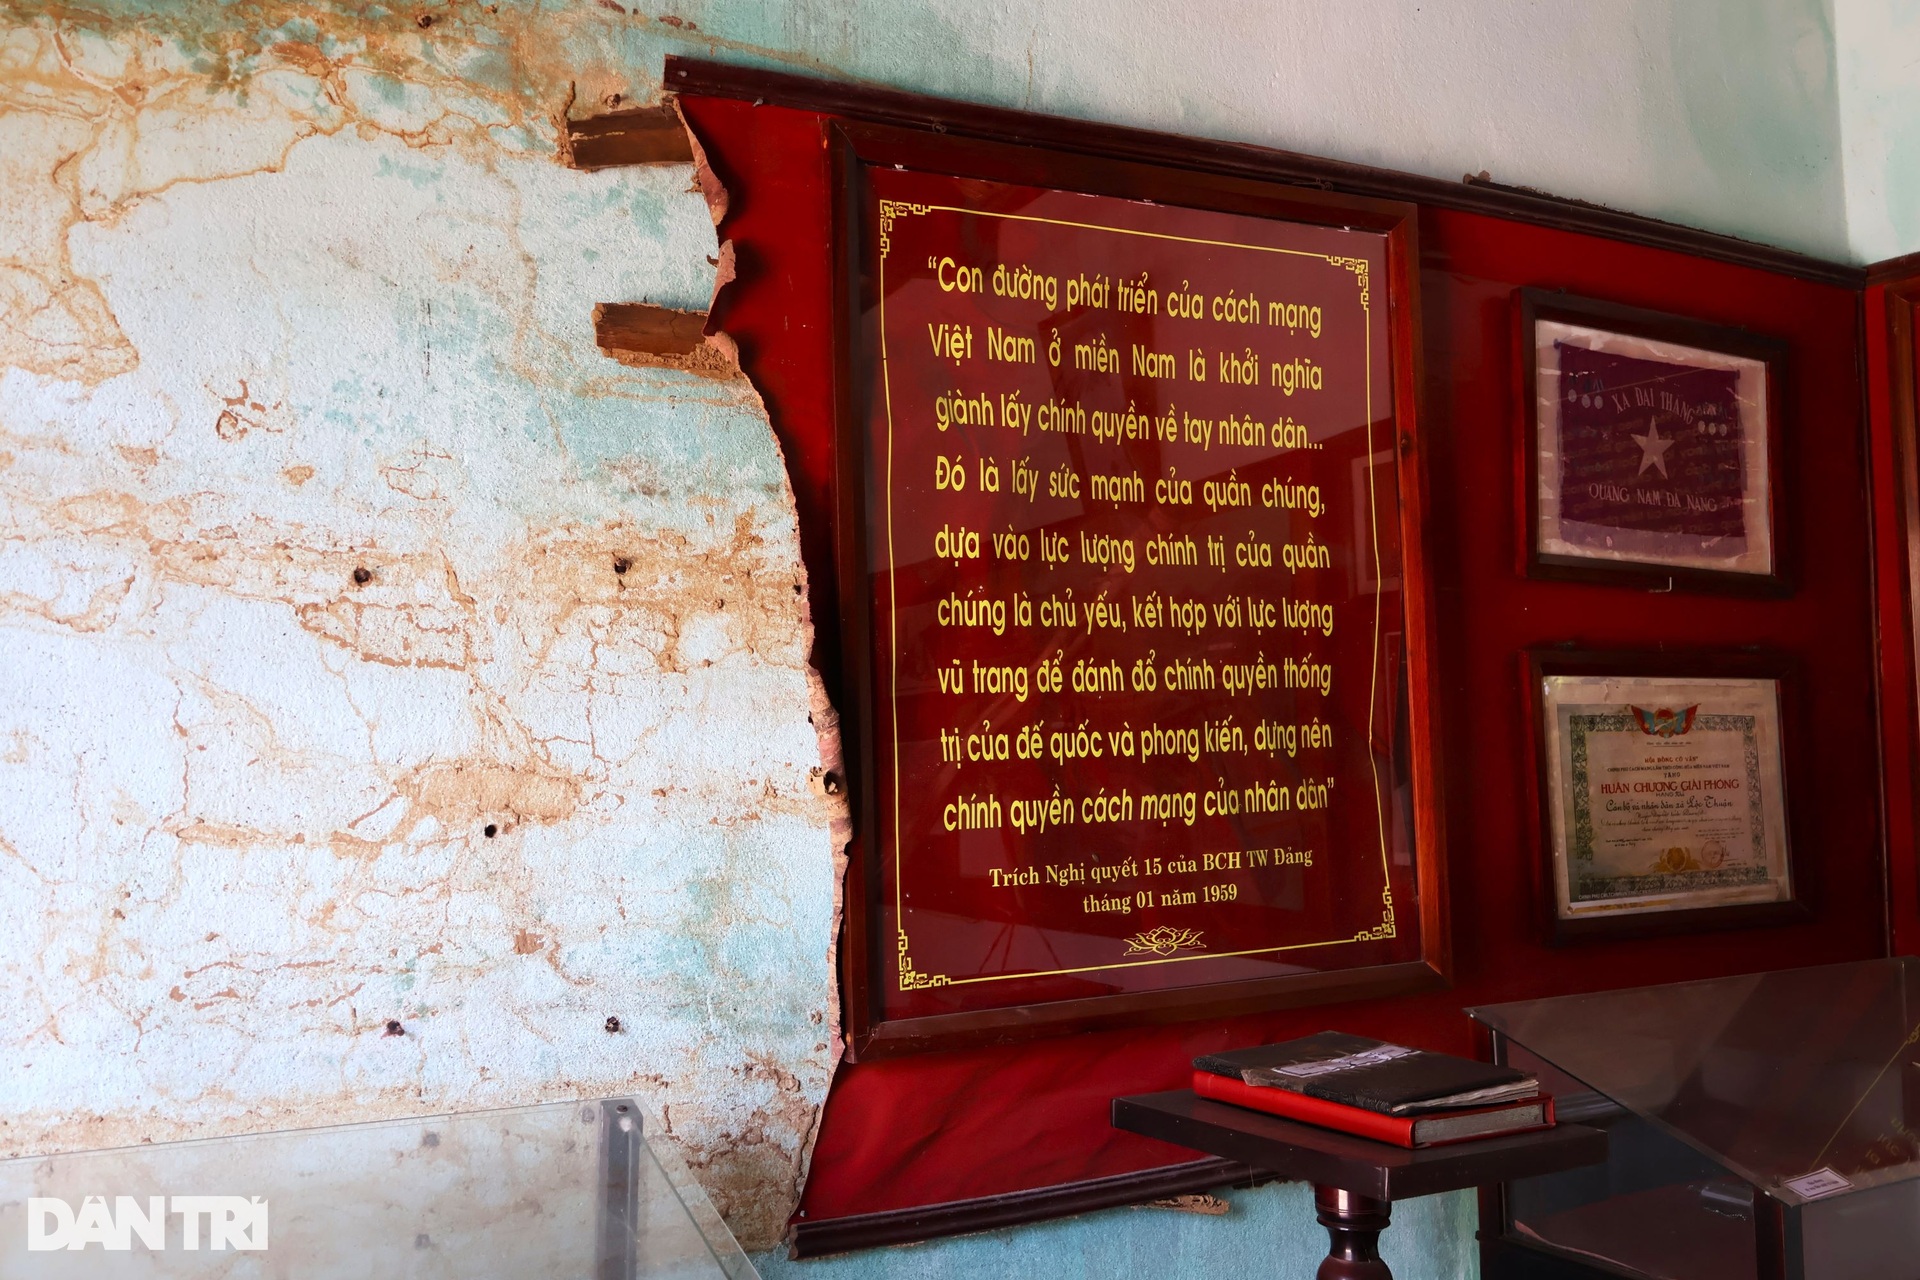 “Con đường phát triển của cách mạng
Việt Nam ở miền Nam là khởi nghĩa
giành lấy chính quyền về tay nhân dân...
Đó là lấy sức mạnh của quần chúng,
dựa vào lực lượng chính trị của quần
chúng là chủ yếu, kết hợp với lực lượng
vũ trang để đánh đổ chính quyền thống
trị của đế quốc và phong kiến, dựng nên
chính quyền cách mạng của nhân dân”
Trích Nghị quyết 15 của BCH TW Đảng
tháng 01 năm 1959
XÃ ĐẠI THẮNG
QUẢNG NAM ĐÀ NẴNG
HỘI ĐỒNG CỐ VẤN
TẶNG
HUÂN CHƯƠNG GIẢI PHÓNG
Cán bộ và nhân dân xã Lộc Thuận
DÂN TRÍ